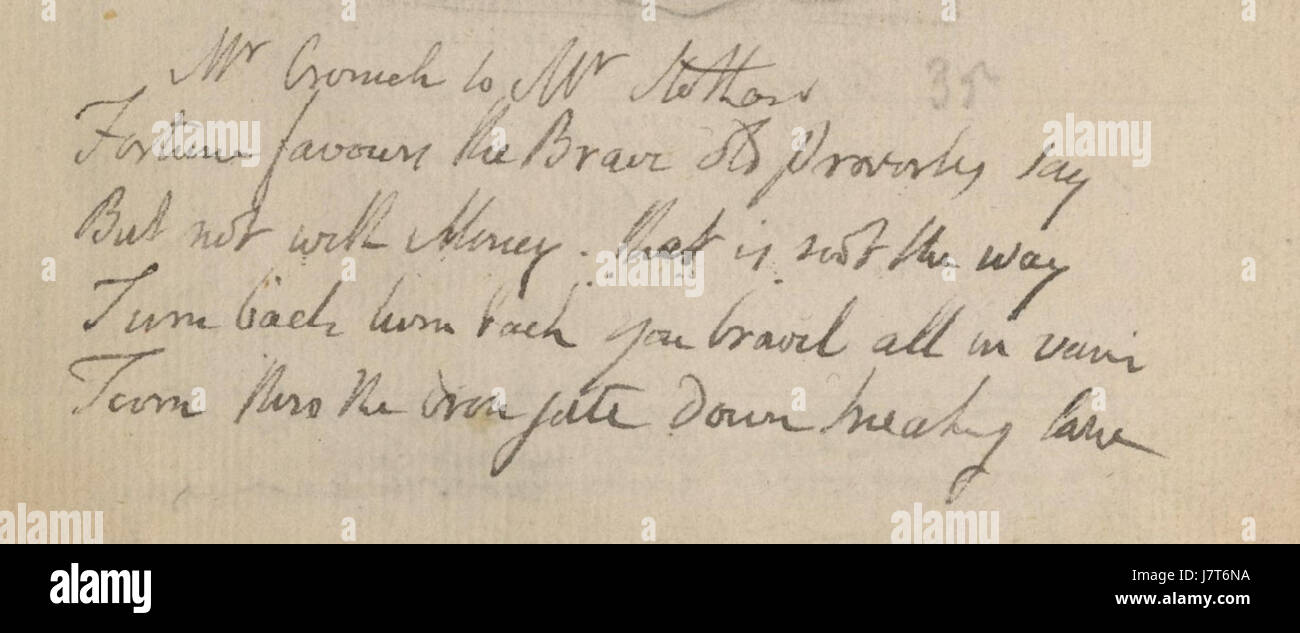 Mr Cromek to Mr Stothard 35
Fortune favours the Brave old Proverbs say
But not with Money. that is not the way
Turn back turn back you travel all in vain
Turn thro the iron gate down Sneaking lane
alamy stock photo
alamy
Image ID: J7T6NA
www.alamy.com